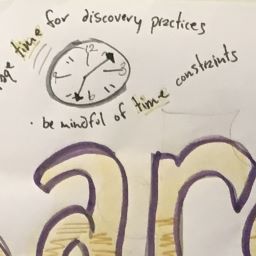 time for discovery practices
12
3
6
• be mindful of time constraints
ar